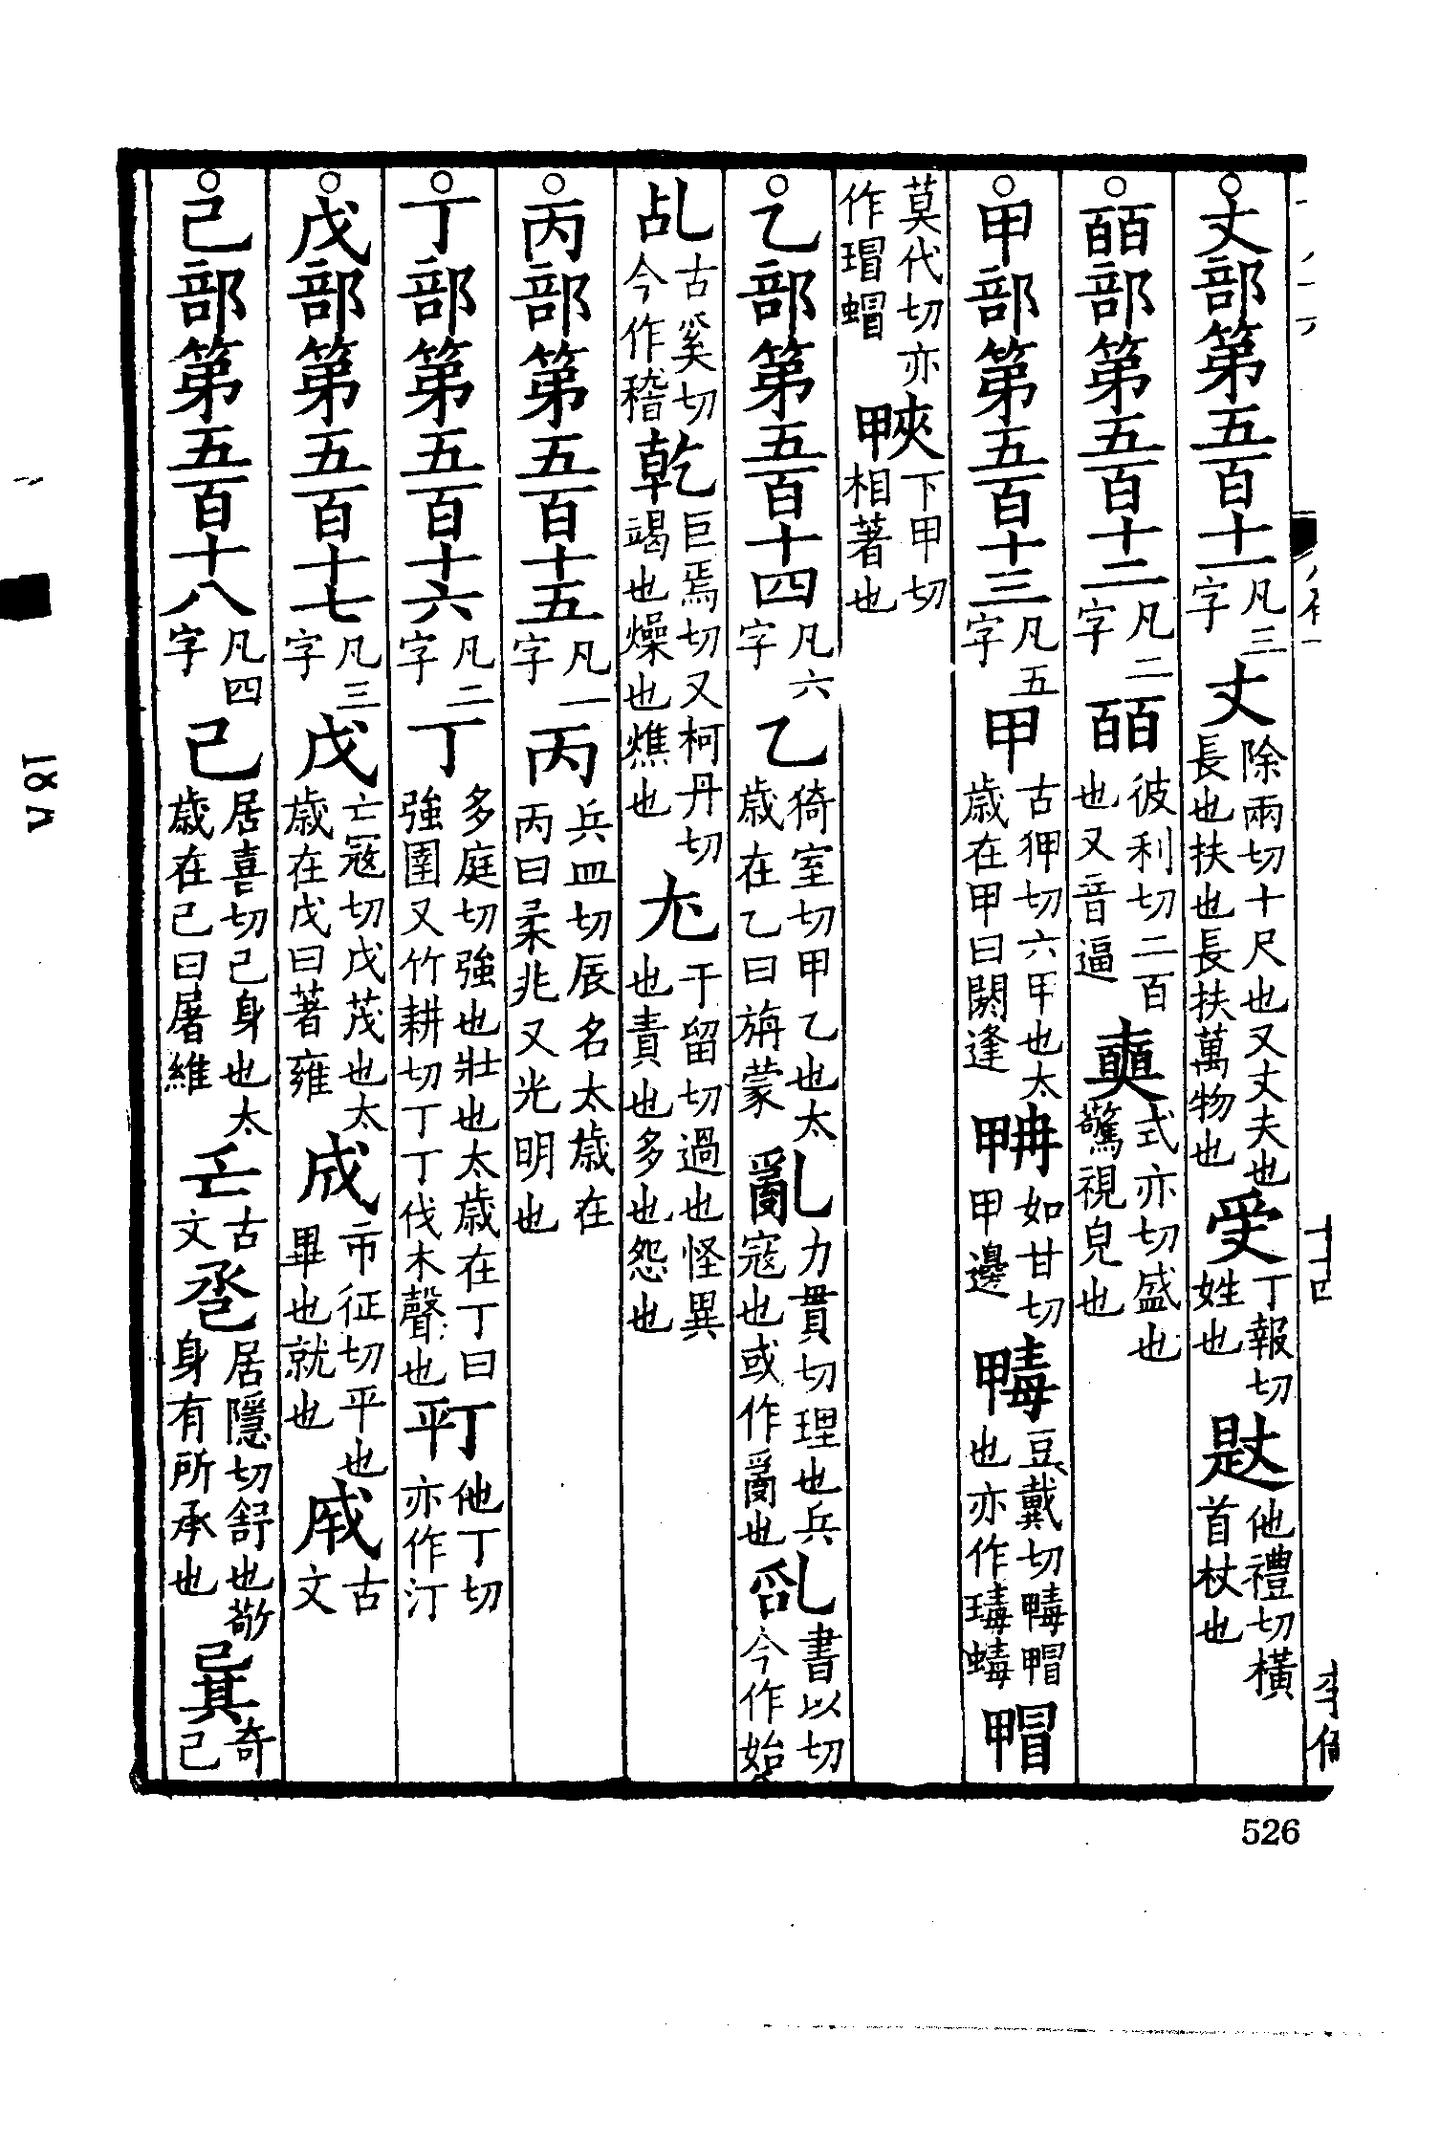 ○丈部第五百十一凡三字丈除兩切十尺也又丈夫也長也扶也長扶萬物也𠭥丁報切姓也𣥺他禮切橫首杖也
○皕部第五百十二凡二字皕彼利切二百也又音逼奭式亦切盛也驚視皃也
○甲部第五百十三凡五字甲古狎切六甲也太歲在甲曰閼逢
如甘切甲邊
豆戴切
也亦作瑇𧑴
莫代切亦作瑁蝐
下甲切相著也
○乙部第五百十四凡六字乙猗室切甲乙也太歲在乙曰旃蒙亂力貫切理也兵寇也或作𤔔也
書以切今作始
乩古奚切今作稽乾巨焉切又柯丹切竭也燥也燋也尤于留切過也怪異也責也多也怨也
○丙部第五百十五凡一字丙兵皿切辰名太歲在丙曰柔兆又光明也
○丁部第五百十六凡二字丁多庭切強也壯也太歲在丁曰強圉又竹耕切丁丁伐木聲也
他丁切亦作汀
○戊部第五百十七凡三字戊亡寇切戊茂也太歲在戊曰著雍成市征切平也畢也就也𢦩古文
○己部第五百十八凡四字己居喜切己身也太歲在己曰屠維𢀒古文巹居隱切舒也敬身有所承也㠱奇己
526